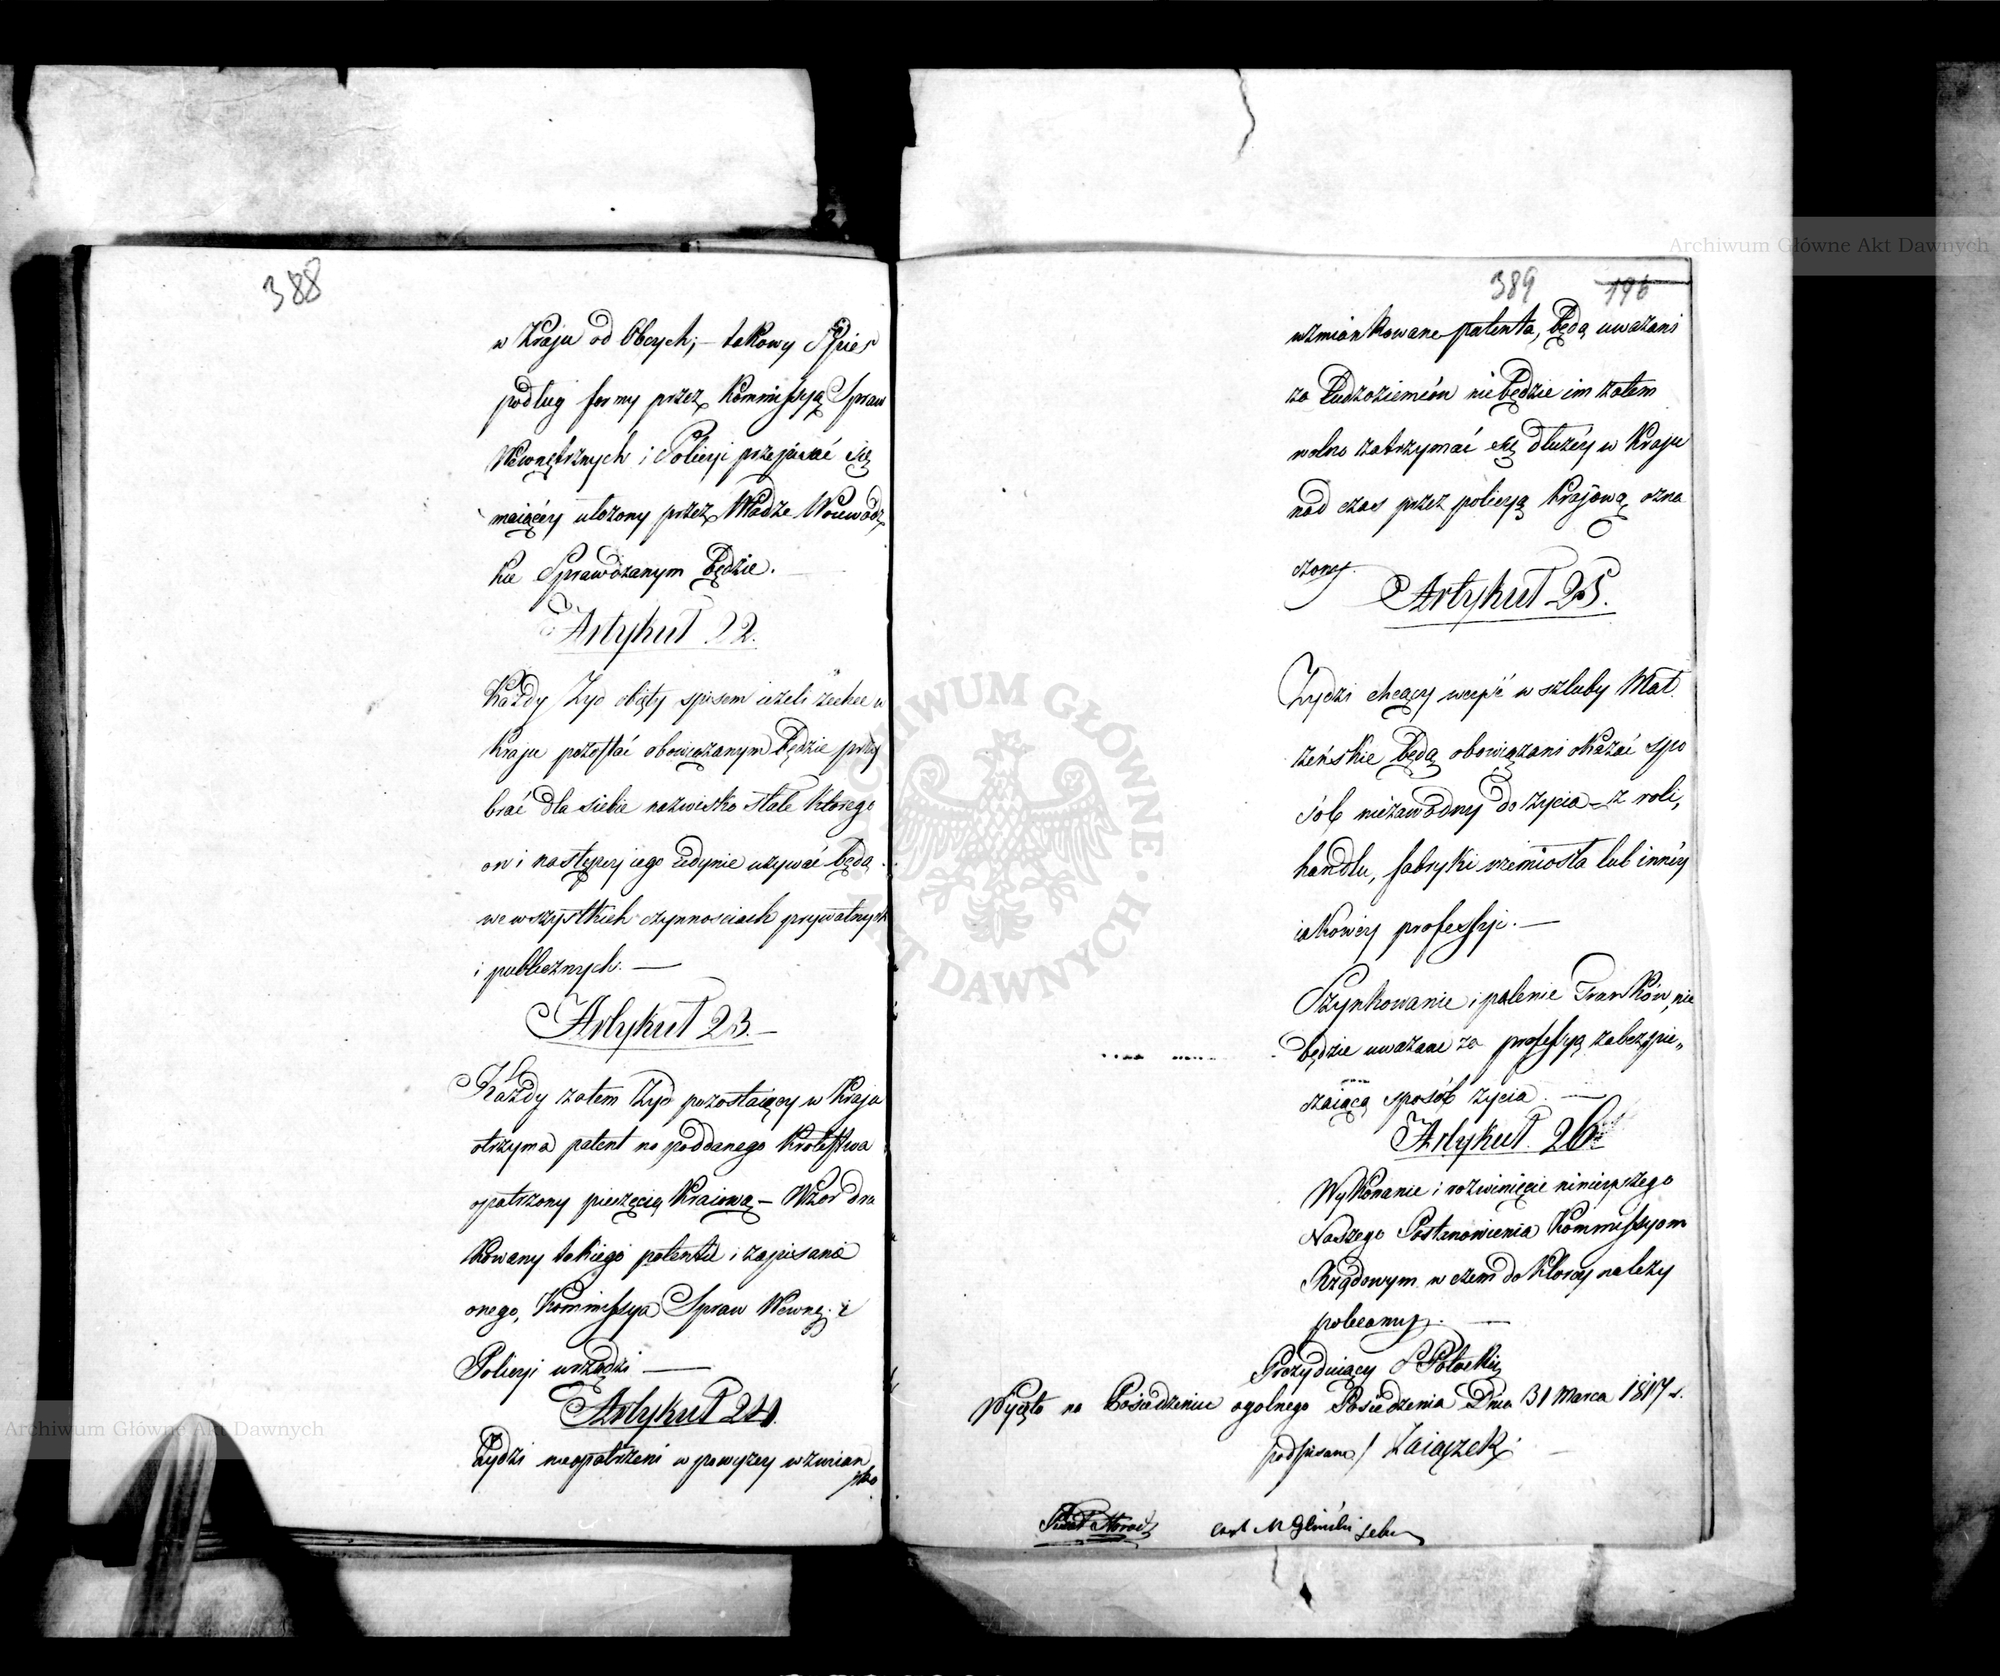 388
w Kraju od Obcych; – takowy Spis
podług formy przez Kommissyą Spraw
Wewnętrznych i Policyi przepisać się
maiącéy ułożony przez Władze Woiewódz
kie Sprawdzanym będzie. –
Artykuł 22.
Każdy Żyd obięty spisem ieżeli zechce w
Kraju pozostać obowiązanym będzie przy
brać dla siebie nazwisko stałe którego
on i następcy iego iedynie używać będą
we wszystkich czynnosciach prywatnych
i publicznych. —
Artykuł 23. –
Każdy zatem Żyd pozostaiący w Kraju
otrzyma patent na poddanego Krolestwa
opatrzony pieczęcią Kraiową – Wzor dru
kowany takiego patentu i zapisania
onego, Kommissya Spraw Wewnę. i
Policyi urządzi —
Artykuł 24.
Żydzi nieopatrzeni w powyżey wzmian
389 196
wzmiankowane patenta, będą uważani
za Cudzoziemców niebędzie im zatem
wolno zatrzymać się dłużéy w Kraju
nad czas przez policyą Krajową ozna
czony.
Artykuł 25.
Żydzi chcący weyść w szluby Mał
żeńskie będą obowiązani okazać spo
sób niezawodny do życia – z roli,
handlu, fabryki rzemiosła lub innéy
iakowéy professyi. —
Szynkowanie i palenie Trunków, nie
będzie uważane za professyą zabezpie„
czaiącą sposób życia. —
Artykuł 26.
Wykonanie i rozwinięcie ninieyszego
Naszego Postanowienia Kommissyom
Rządowym w czem do Którey należy
polecamy. —
Prezyduiący S Potocki
Wyięto na Posiedzeniu ogolnego Posiedzenia Dnia 31 Marca 1817 r.
podpisano/ Zaiączek. –
M Gliński